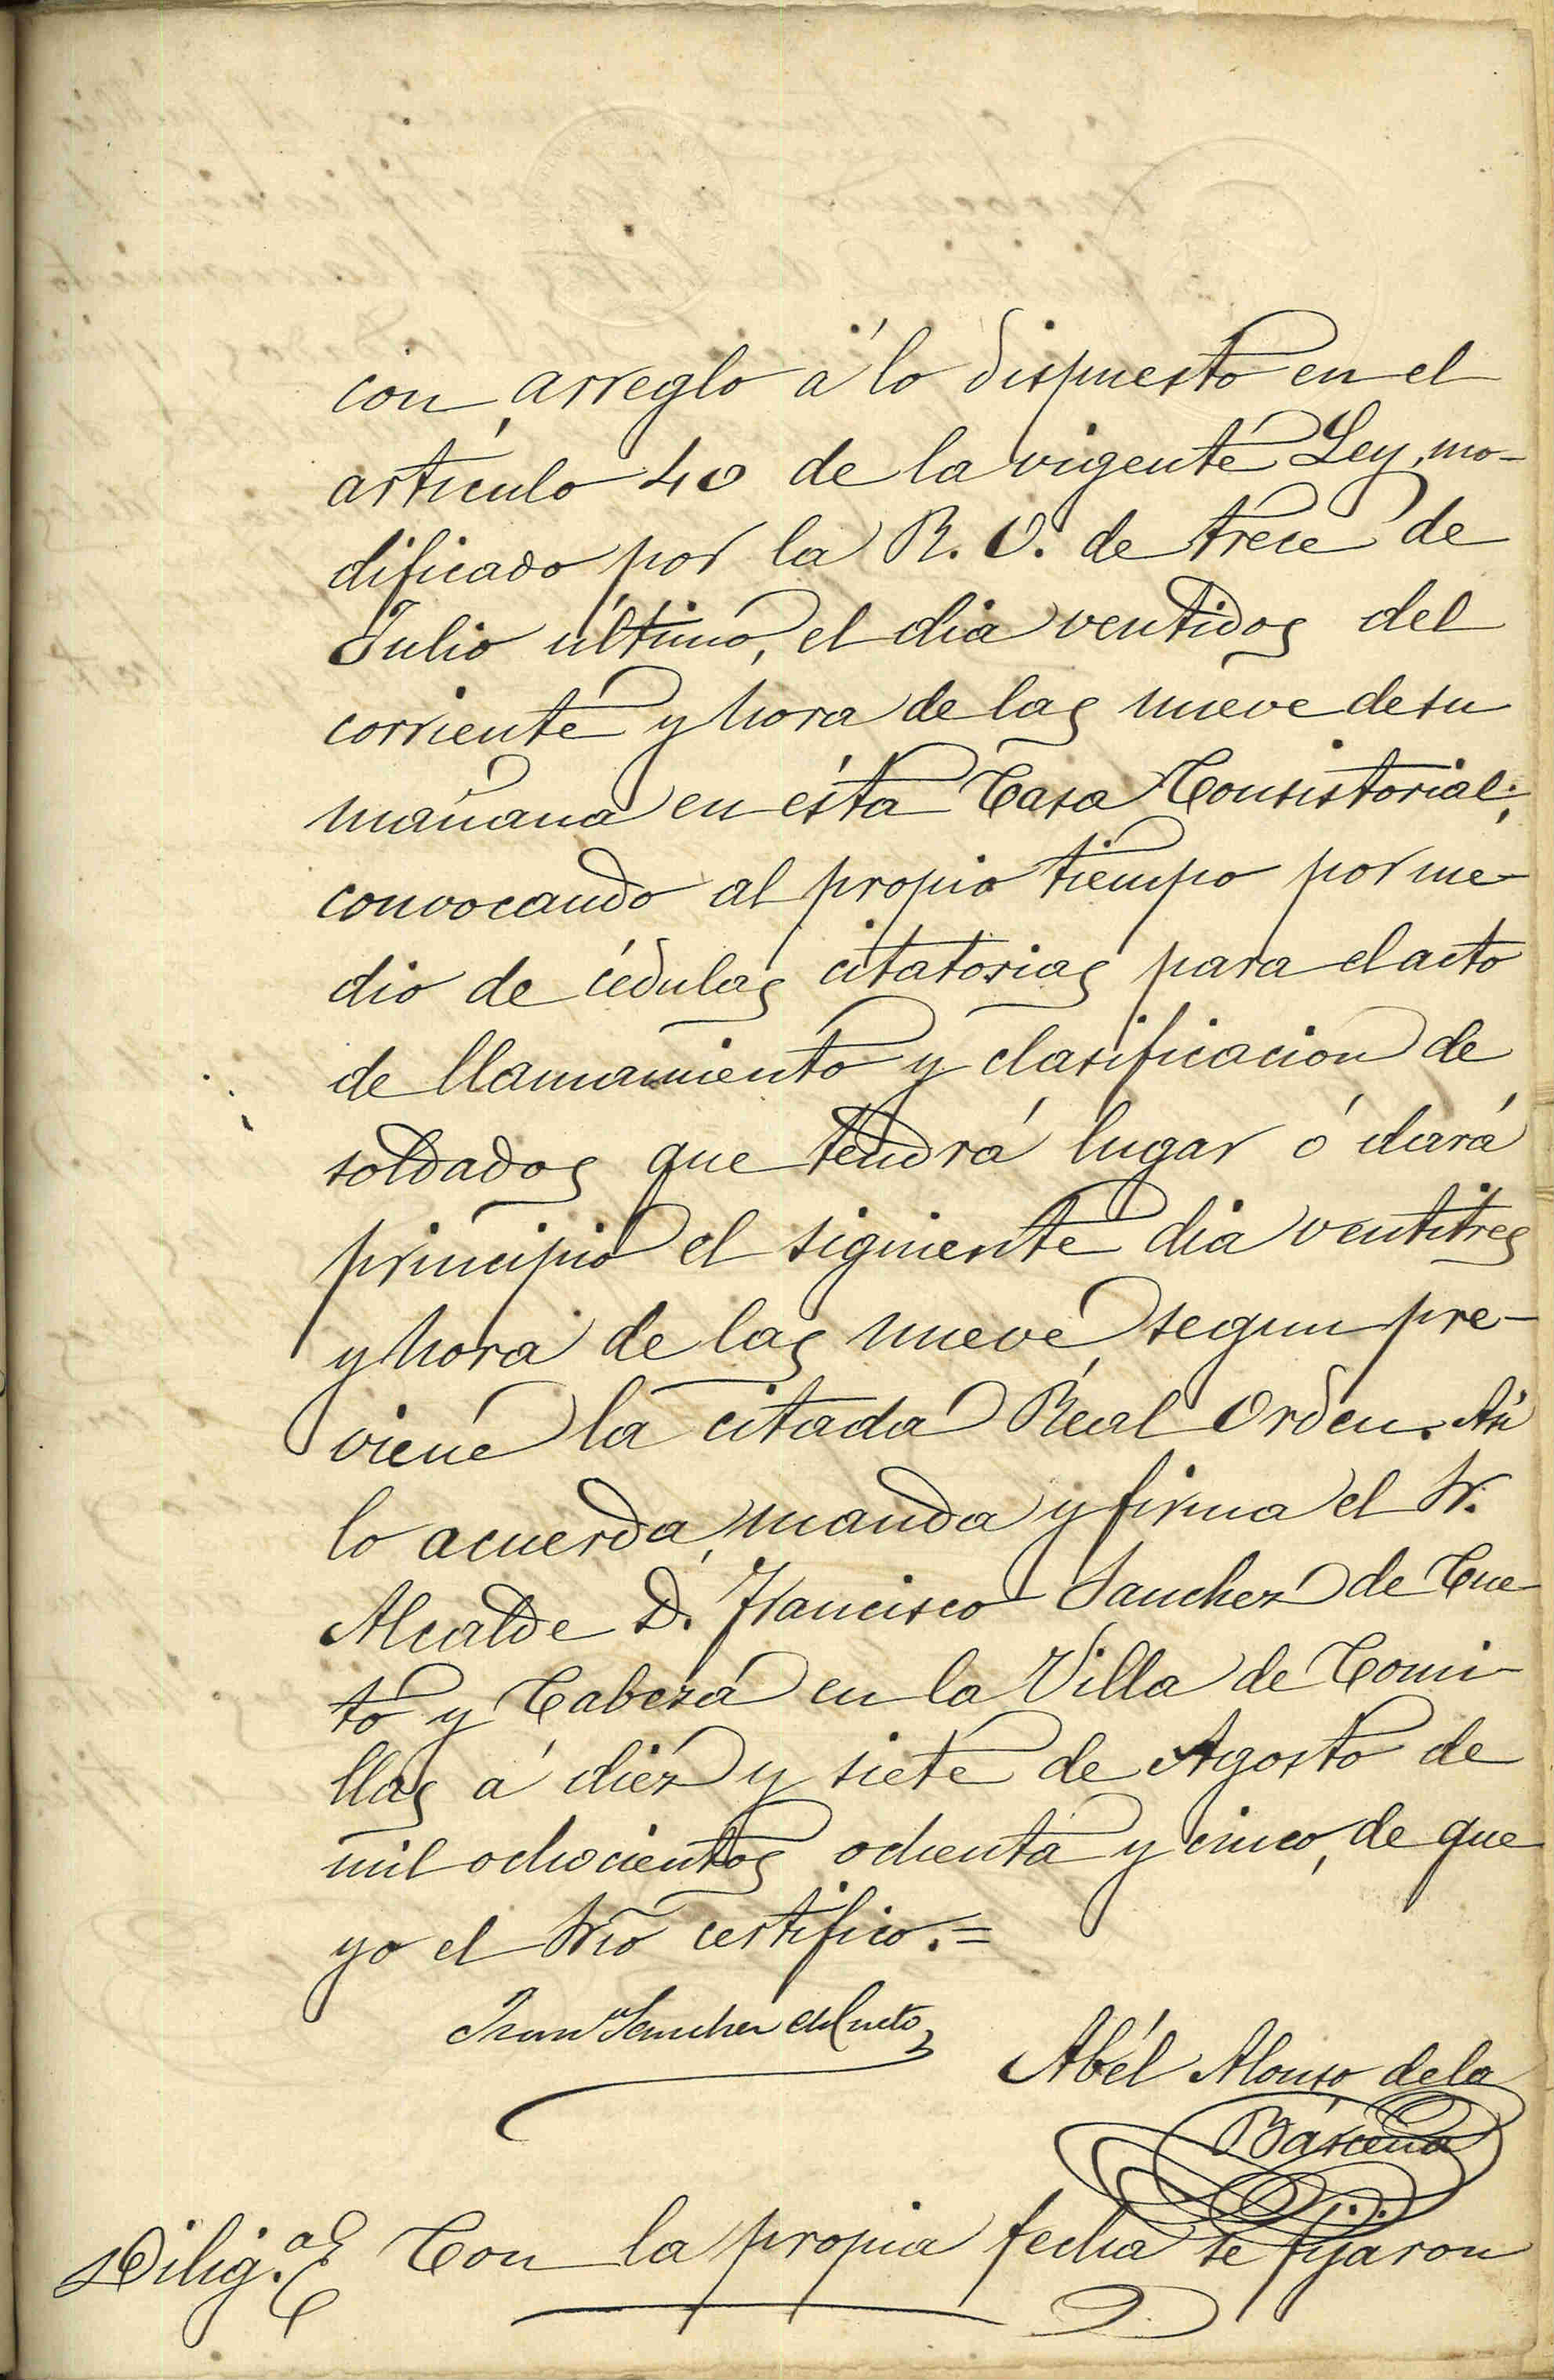 con arreglo á lo dispuesto en el
artículo 40 de la vigente Ley, mo-
dificado por la R. O. de trece de
Julio último, el dia ventidos del
corriente y hora de las nueve de su
mañana en ésta Casa Consistorial;
convocando al propio tiempo por me-
dio de cédulas citatorias para el acto
de llamamiento y clasificacion de
soldados que tendrá lugar ó dará
principio el siguiente dia ventitres
y hora de las nueve, segun pre-
viene la citada Real Orden. Asi
lo acuerda, manda y firma el Sr.
Alcalde D. Francisco Sanchez de Cue-
to y Cabeza en la Villa de Comi-
llas á diez y siete de Agosto de
mil ochocientos ochenta y cinco, de que
yo el Srio certifico.=
Sanchez de Cueto
Abél Alonso de la
Bárcena
Dilig.a Con la propia fecha se fijaron